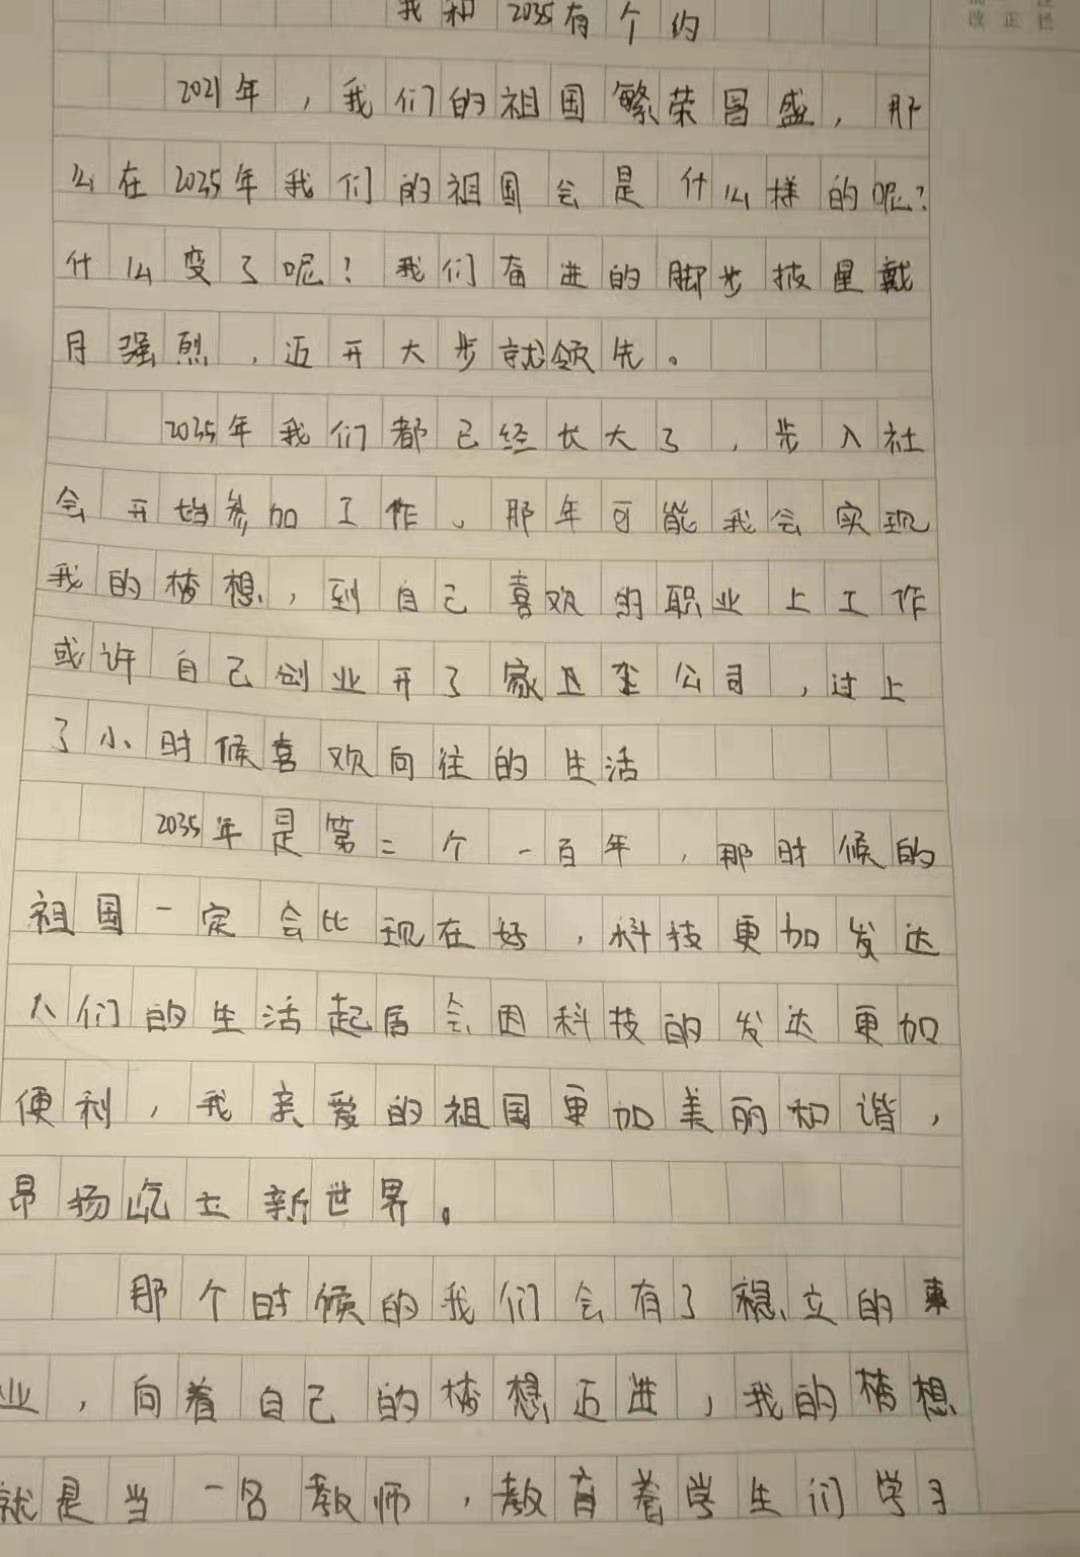 我和2035有个约
2021年，我们的祖国繁荣昌盛，那
么在2035年我们的祖国会是什么样的呢?
什么变了呢?我们奋进的脚步披星戴
月强烈，迈开大步就领先。
2035年我们都已经长大了，步入社
会开始参加工作。那年可能我会实现
我的梦想，到自己喜欢的职业上工作
或许自己创业开了家公司，过上
了小时候喜欢向往的生活
2035年是第二个一百年，那时候的
祖国一定会比现在好，科技更加发达
人们的生活起居会因科技的发达更加
便利，我亲爱的祖国更加美丽和谐，
昂扬屹立新世界。
那个时候的我们会有了稳立的事
业，向着自己的梦想迈进，我的梦想
就是当一名教师，教育着学生们学习